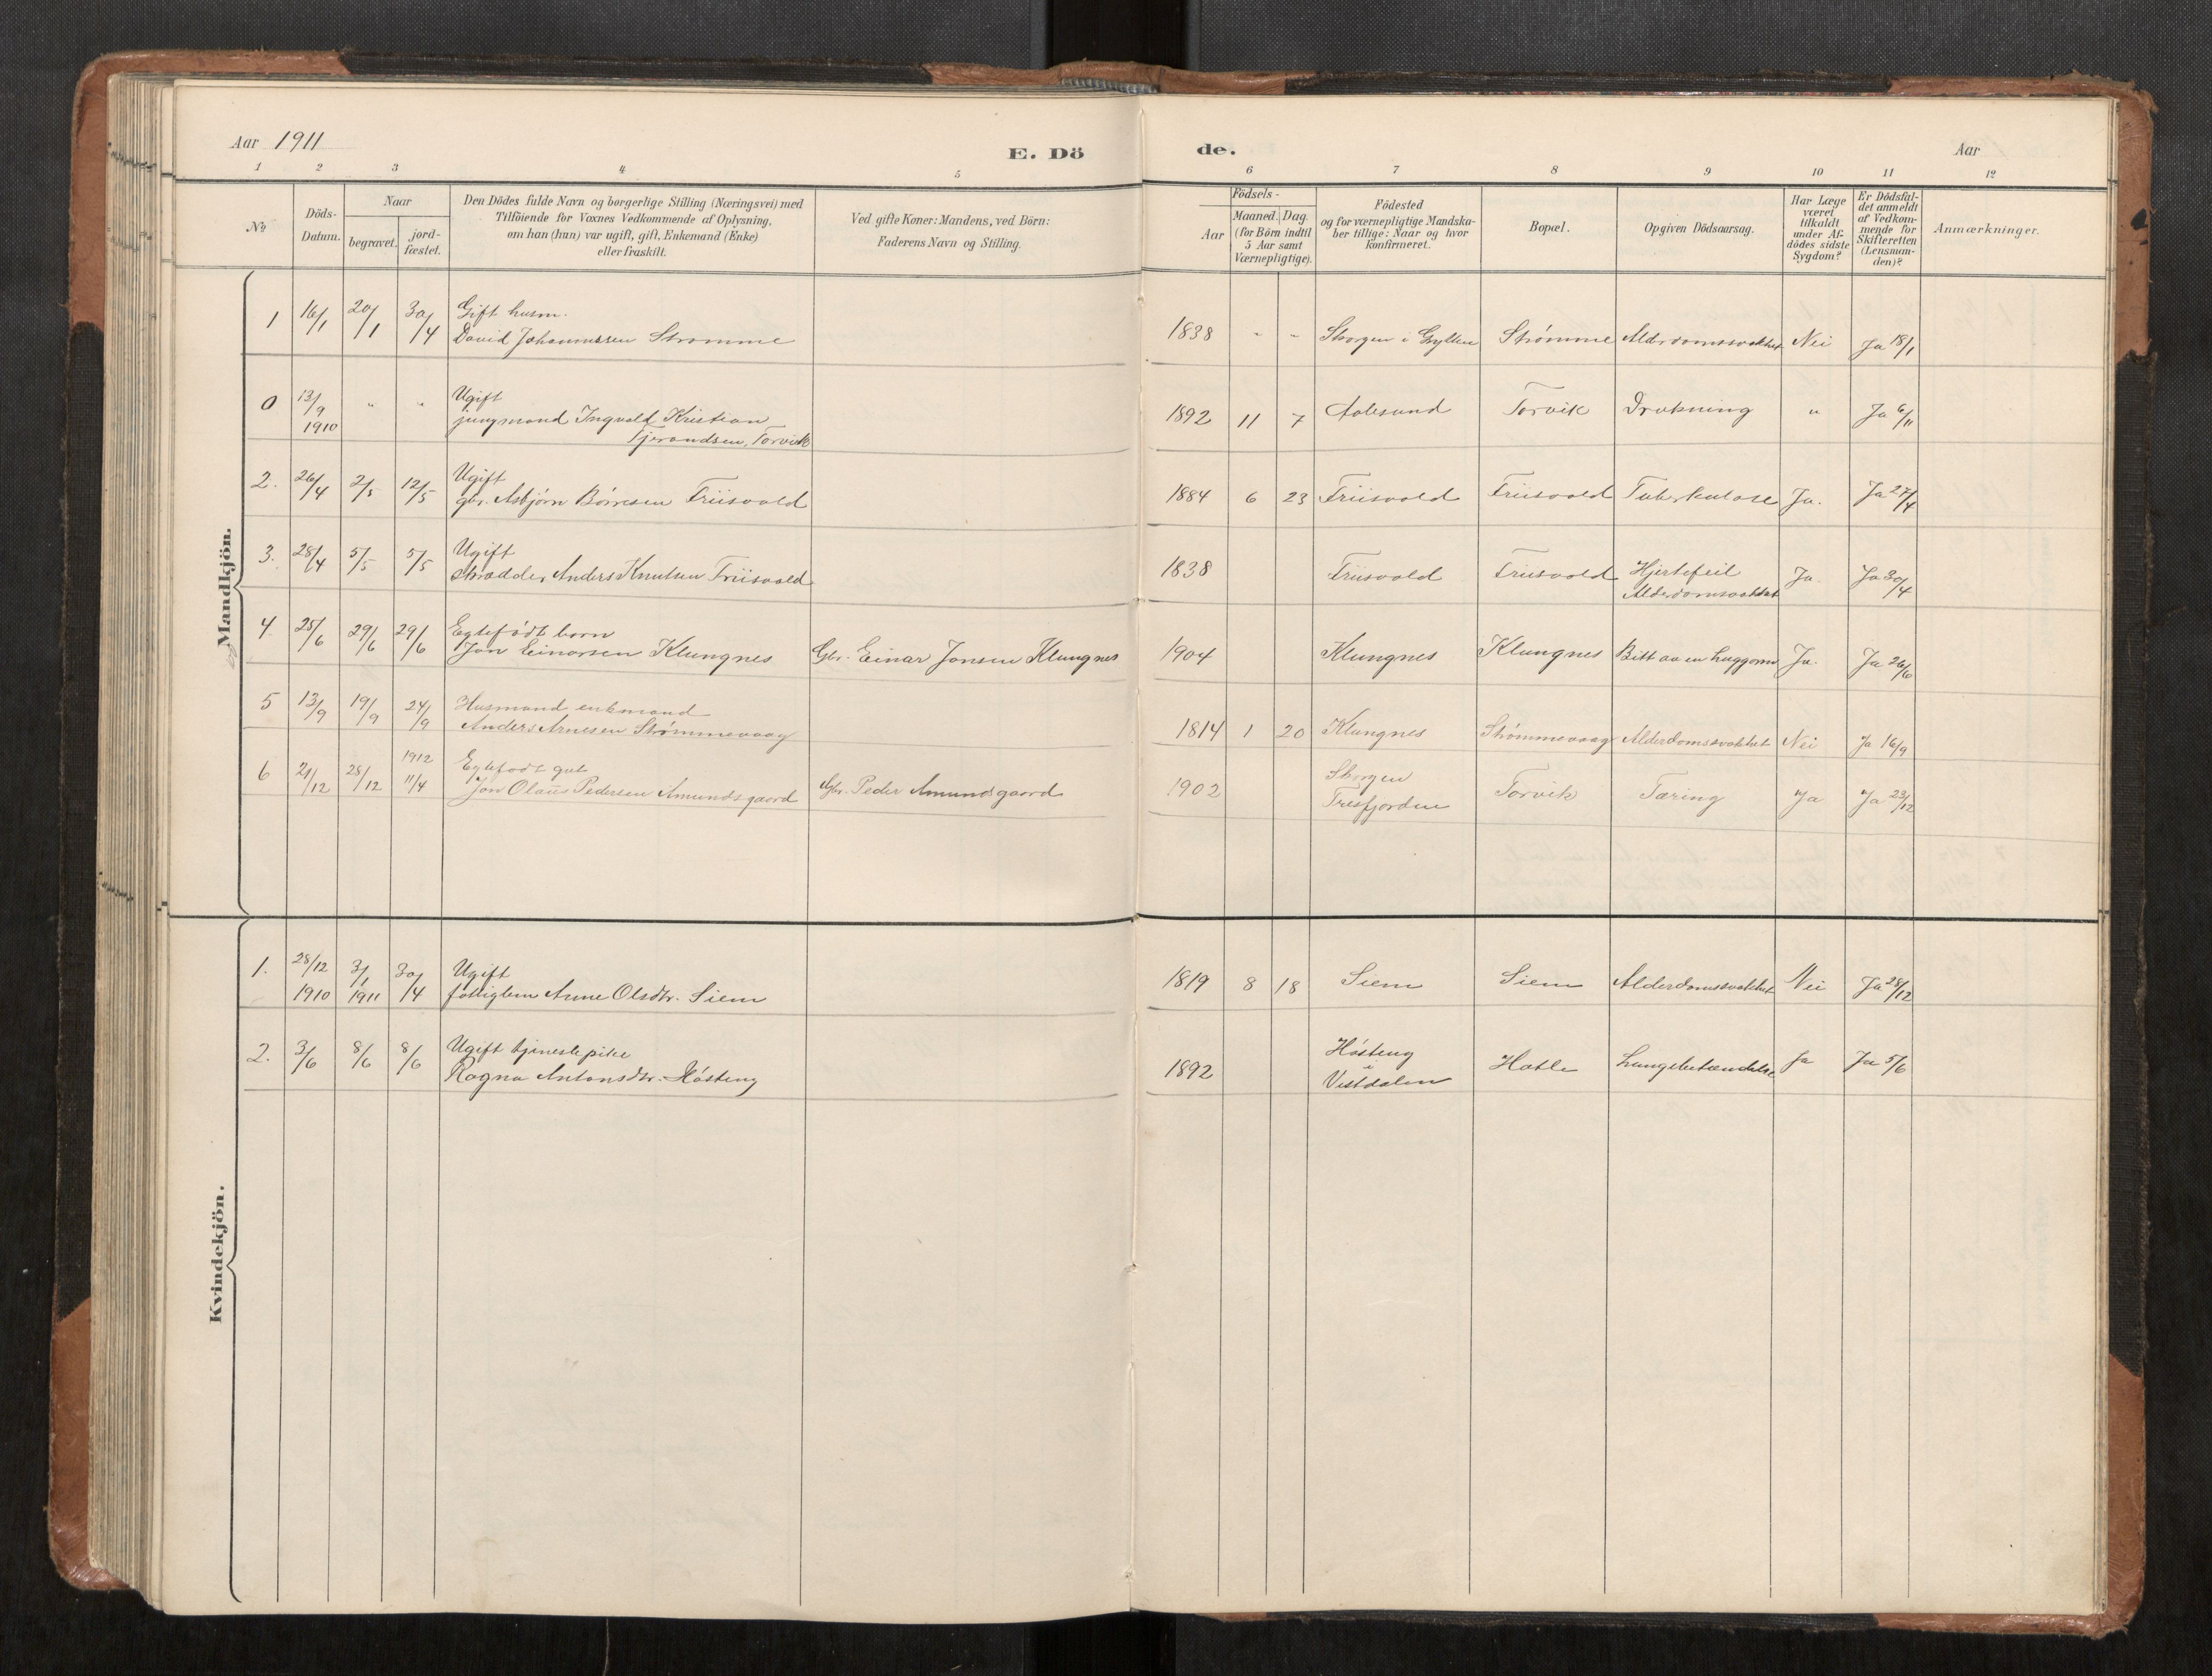 Aar 1911
E. Dö
de.
Aar
1 2 3 4 5 6 7 8 9 10 11 12
No
Döds-
Datum.
Naar
begravet.
jord-
fæstet.
Den Dödes fulde Navn og borgerlige Stilling (Næringsvei) med
Tilföiende for Voxnes Vedkommende af Oplysning,
om han (hun) var ugift, gift, Enkemand (Enke)
eller fraskilt.
Ved gifte Koner: Mandens, ved Börn:
Faderens Navn og Stilling.
Födsels-
Aar
Maaned. Dag.
(for Börn indtil
5 Aar samt
Værnepligtige).
Födested
og for værnepligtige Mandska-
ber tillige: Naar og hvor
konfirmeret.
Bopæl.
Opgiven Dödsaarsag.
Har Læge
været
tilkaldt
under Af-
dödes sidste
Sygdom?
Er Dödsfal-
det anmeldt
af Vedkom-
mende for
Skifteretten
(Lensman-
den)?
Anmærkninger.
Mandkjön.
1 16/1 20/1 30/4 Gift husm.
David Johannessen Strømme 1838 - - Skorgen i Grytten Strømme Alderdomssvakhet Nei Ja 18/1
0 13/9 1910 " " Ugift
jungmand Ingvald Kristian
Tjerandsen, Torvik 1892 11 7 Aalesund Torvik Drukning " Ja 6/11
2. 26/4 2/5 12/5 Ugift
gbr. Asbjørn Børresen Friisvold 1884 6 23 Friisvold Friisvold Tuberkulose Ja. Ja 27/4
3. 28/4 5/5 5/5 Ugift
Skrædder Anders Knutsen Friisvold 1838 Friisvold Friisvold Hjertefeil
Alderdomssvakhet Ja. Ja 30/4
4 25/6 29/6 29/6 Egtefødt barn
Jon Einarsen Klungnes Gbr. Einar Jonsen Klungnes 1904 Klungnes Klungnes Bitt av en huggorm Ja. Ja 26/6
5 13/9 19/9 24/9 Husmand enkmand
Anders Arnesen Strømmevaag 1814 1 20 Klungnes Strømmevaag Alderdomssvakhet Nei Ja 16/9
6 21/12 28/12 1912 11/4 Egtefødt gut
Jon Olaus Pedersen Amundsgaard Gbr. Peder Amundsgaard 1902 Skorgen
Tresfjorden Torvik Tæring Ja Ja 23/12
Kvindekjön.
1. 28/12 1910 3/1 1911 30/4 Ugift
fattiglem Anne Olsdtr. Siem 1819 8 18 Siem Siem Alderdomssvakhet Nei Ja 28/12
2. 3/6 8/6 8/6 Ugift tjenestepike
Ragna Antonsdtr. Høsteng 1892 Høsteng
i
Vestdalen Hatle Lungebetændelse Ja Ja 5/6